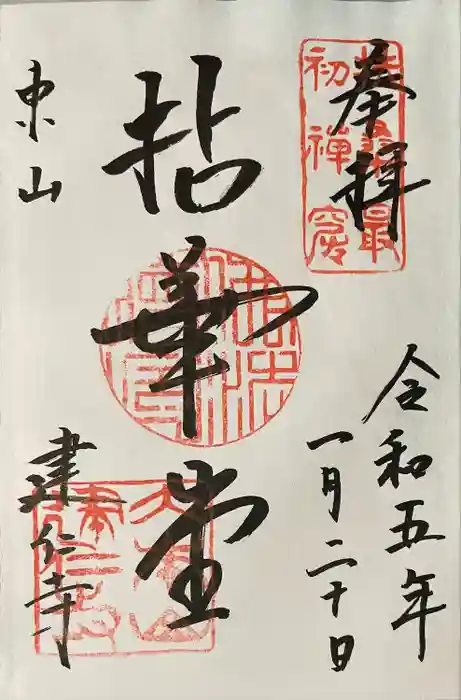 奉拝
令和五年
一月二十日
拈華堂
東山
建仁寺
最初禅窟